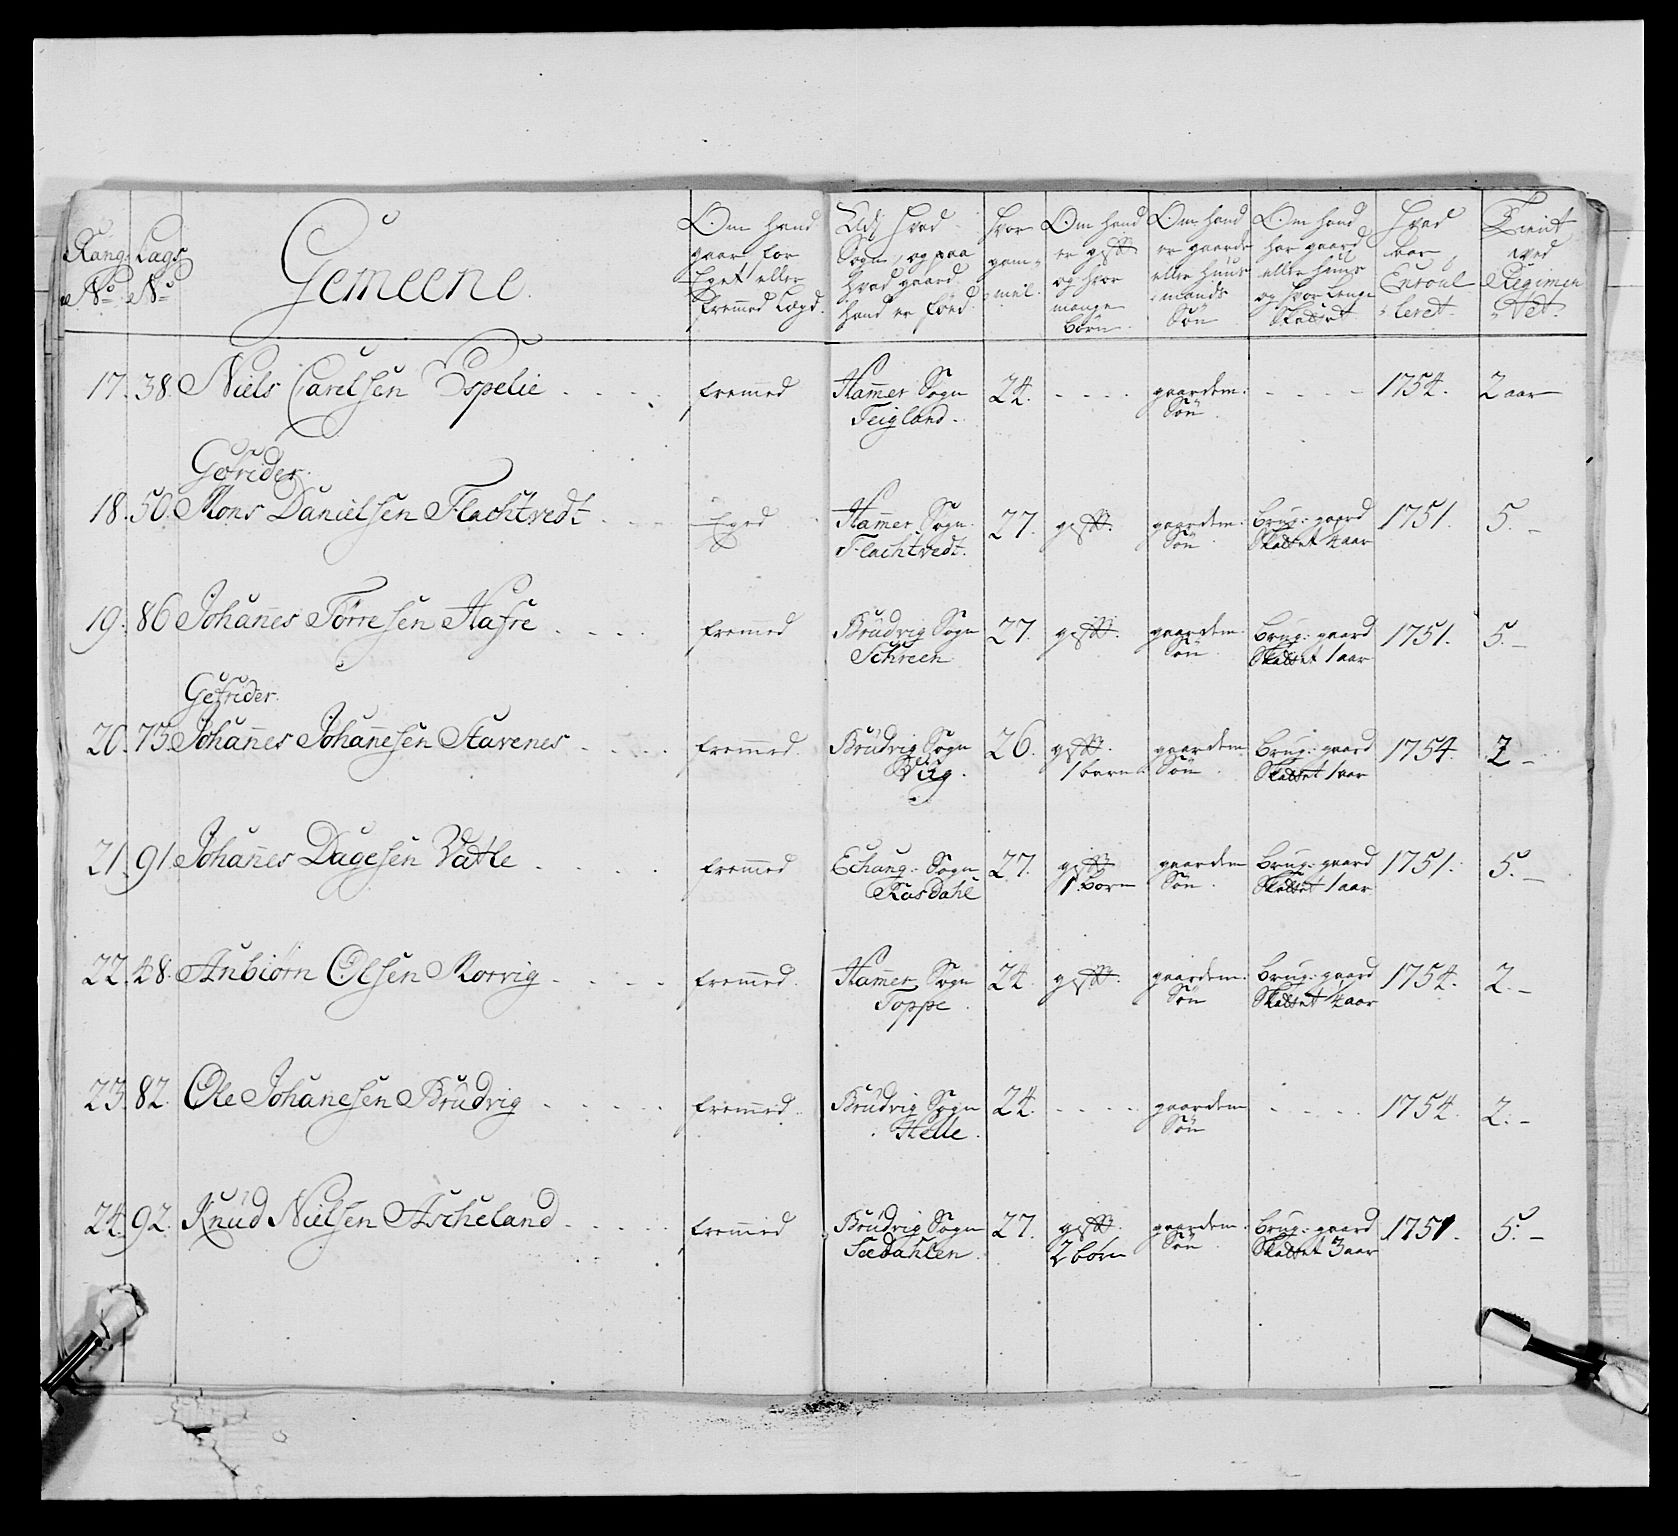 Rang No | Lags No | Gemeene. | Om hand gaar for Eget eller fremmed Lægd. | Udj hvad Sogn, og paa hvad gaard hand er føed. | hvor gam-mel. | Om hand er gift og hvor mange børn. | Om hand er gaards eller huus-mands Søn | Om hand har gaard eller huus og hvor lenge Skattet | Hvad aar Enroul-leret. | Tient ved Regimen-tet.
17. | 38. | Niels Carelsen Espelie | fremed | Hammer Sogn Teigland. | 24. | - - - - | gaardem: Søn | - - - - | 1754. | 2 aar
Gefrider.
18. | 50. | Mons Danielsen Flachtvedt | Eged | Hammer Sogn. Flachtvedt. | 27. | gift. | gaardem: Søn | brug: gaard Skattet 4 aar | 1751. | 5. -
19. | 86 | Johannes Torresen Hafre | fremed | Brudvig Sogn Schreen | 27. | gift. | gaardem: Søn | brug: gaard Skattet 1 aar | 1751. | 5. -
Gefrider.
20. | 75. | Johannes Johannesen Stavenes | fremmed. | Brudvig Sogn Viig. | 26. | gift. 1 barn | gaardem Søn | brug: gaard Skattet 1 aar | 1754. | 2 -
21. | 91. | Johannes Dagesen Vatle | fremmed | Echang: Sogn Rasdahl | 27. | gift 1 born | gaardem Søn | brug: gaard Skattet 1 aar | 1751. | 5. -
22. | 48. | Anbiørn Olsen Morvig | fremmed. | Hammer Sogn Toppe | 24. | gift. | gaardem: Søn | brug: gaard Skattet 4 aar | 1754. | 2. -
23. | 82. | Ole Johannesen Brudvig | fremmed. | Brudvig Sogn Helle. | 24. | - - - - | gaardem Søn | - - - - | 1754. | 2. -
24. | 92. | Knud Nielsen Ascheland | fremmed | Brudvig Sogn Sædahlen. | 27. | gift. 2 børn | gaardem: Søn | brug: gaard Skattet 3 aar | 1751. | 5. -